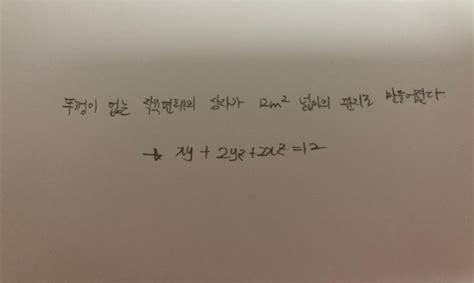 뚜껑이 없는 직육면체의 상자가 12m² 넓이의 판지로 만들어졌다
→ xy + 2yz + 2xz = 12